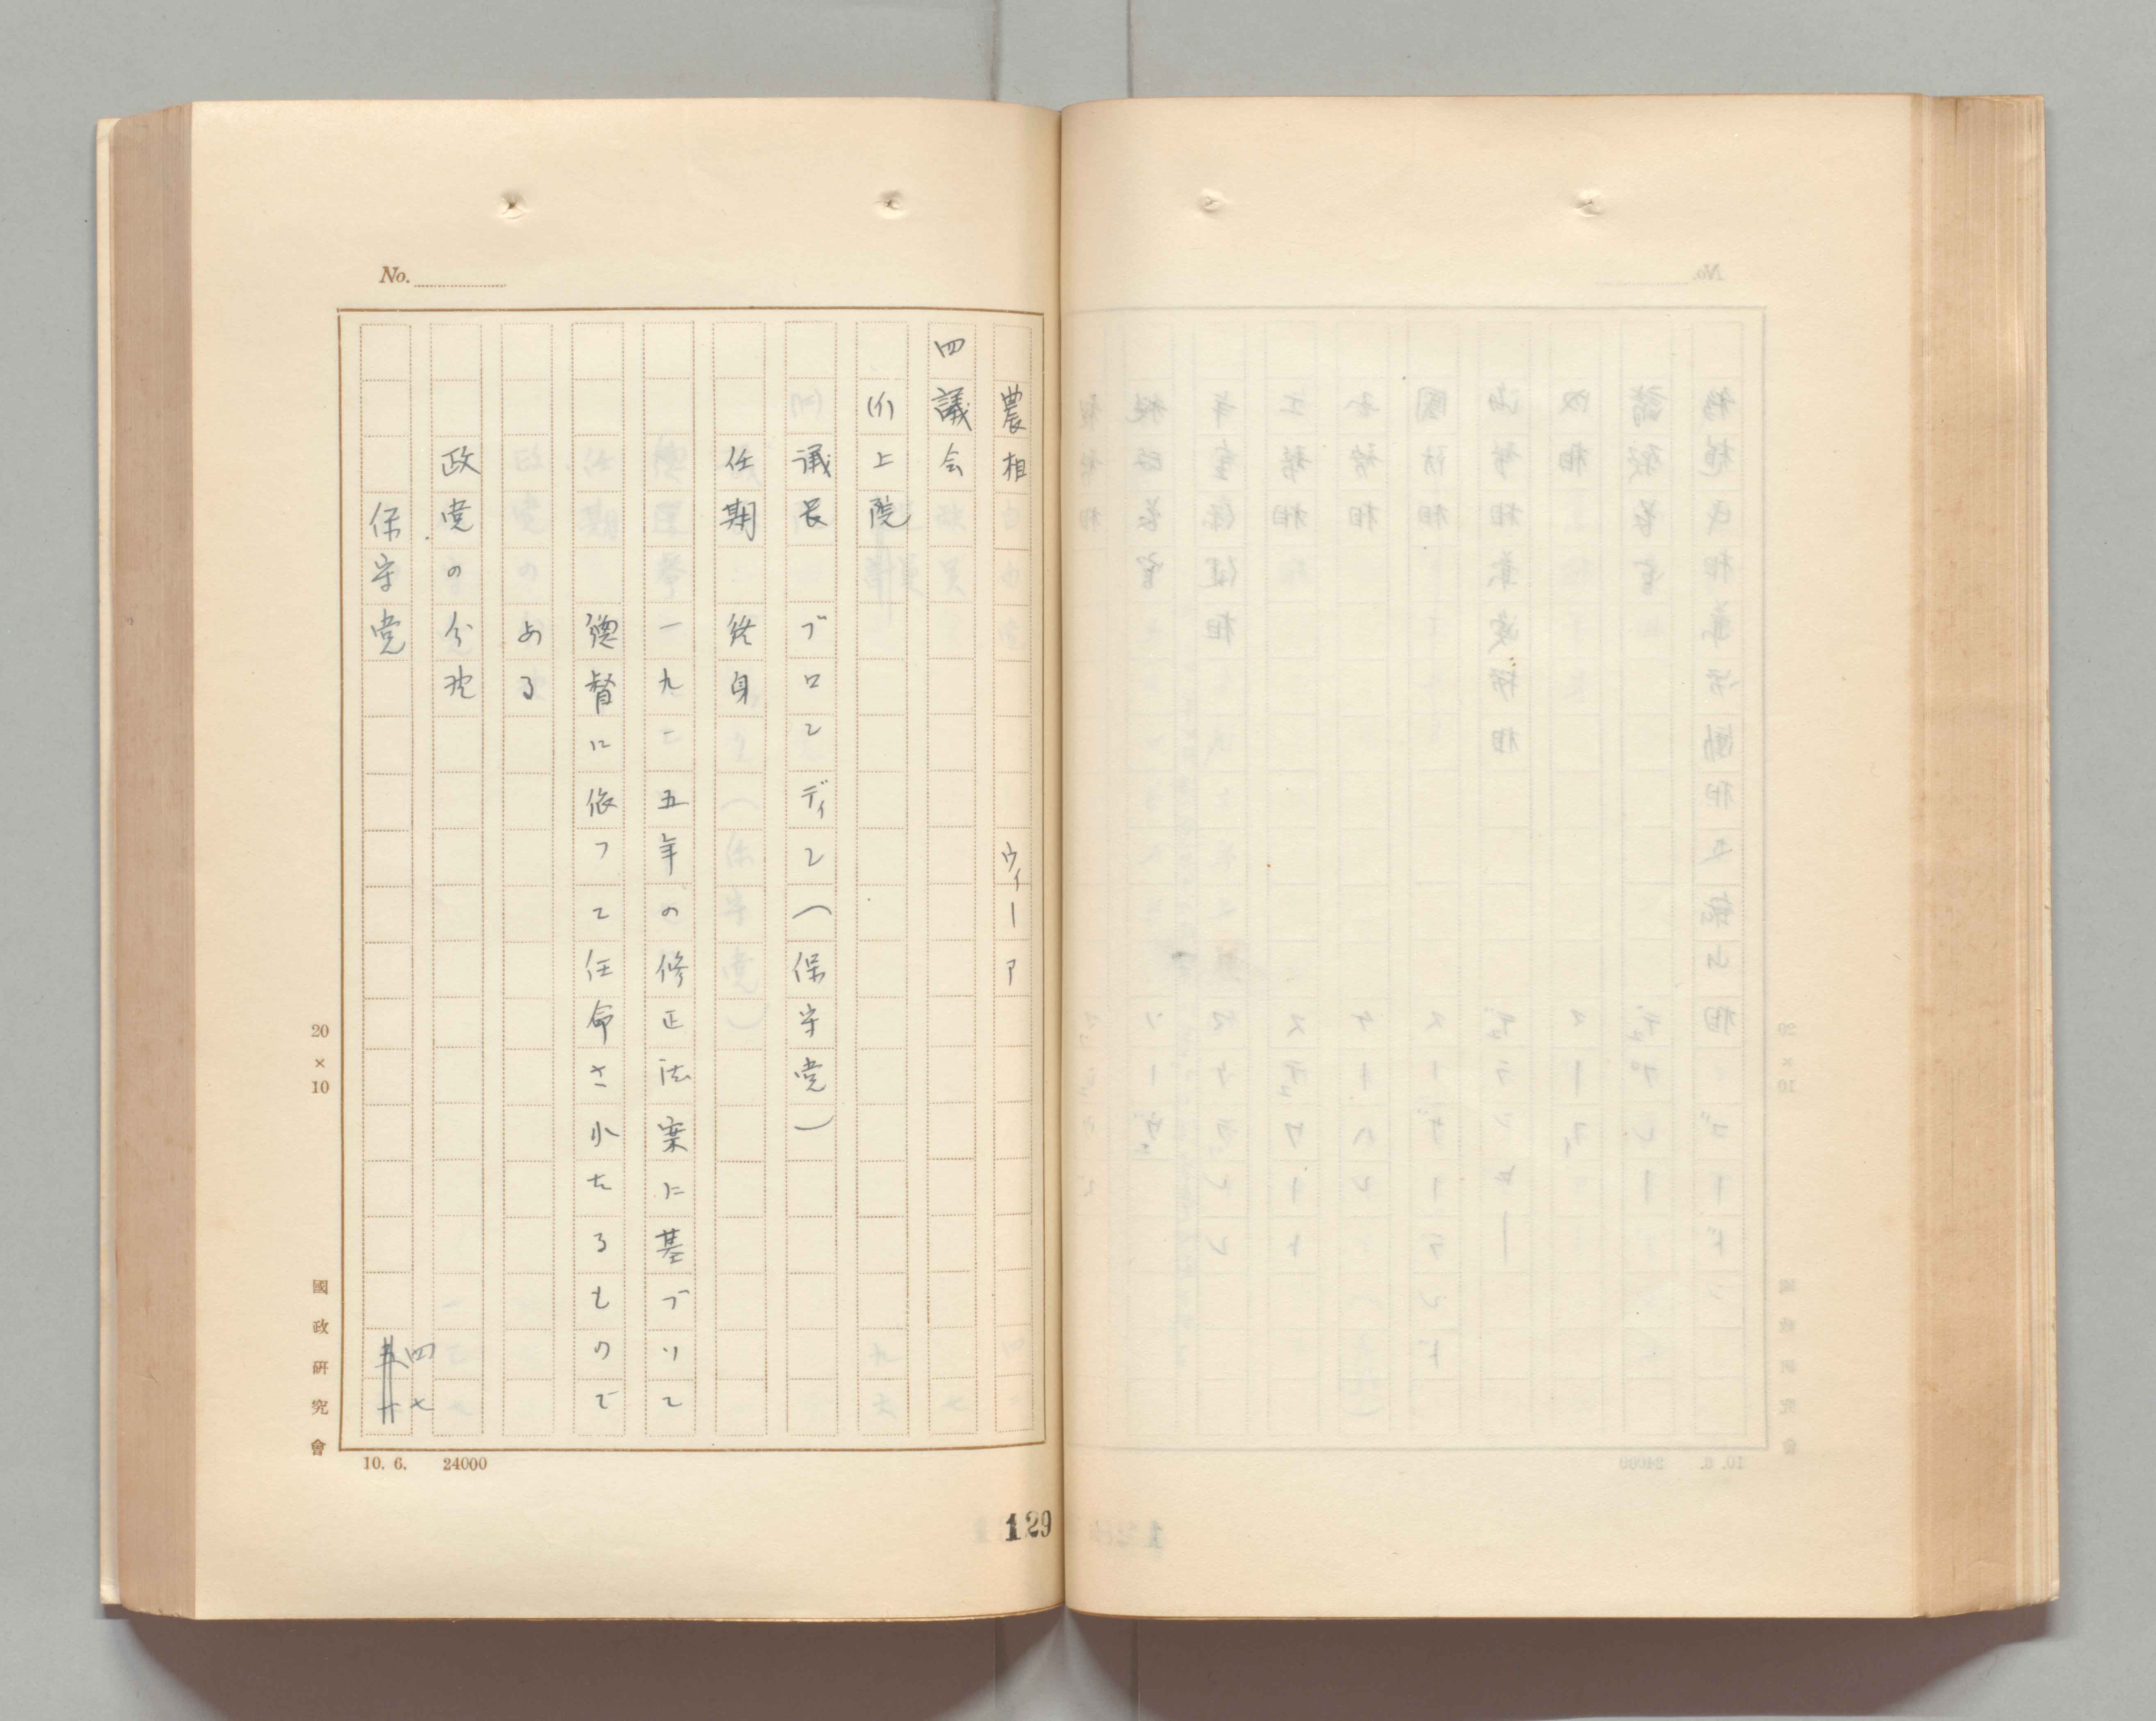 No.
農相 ウィーア
四議会
(イ)上院
議長 ブロンディン(保守党)
任期 終身
一九二五年の修正法案に基づいて
總督に依つて任命されたるもので
ある
政党の分野
保守党
四七
20×10
國政硏究會
10. 6. 24000
129